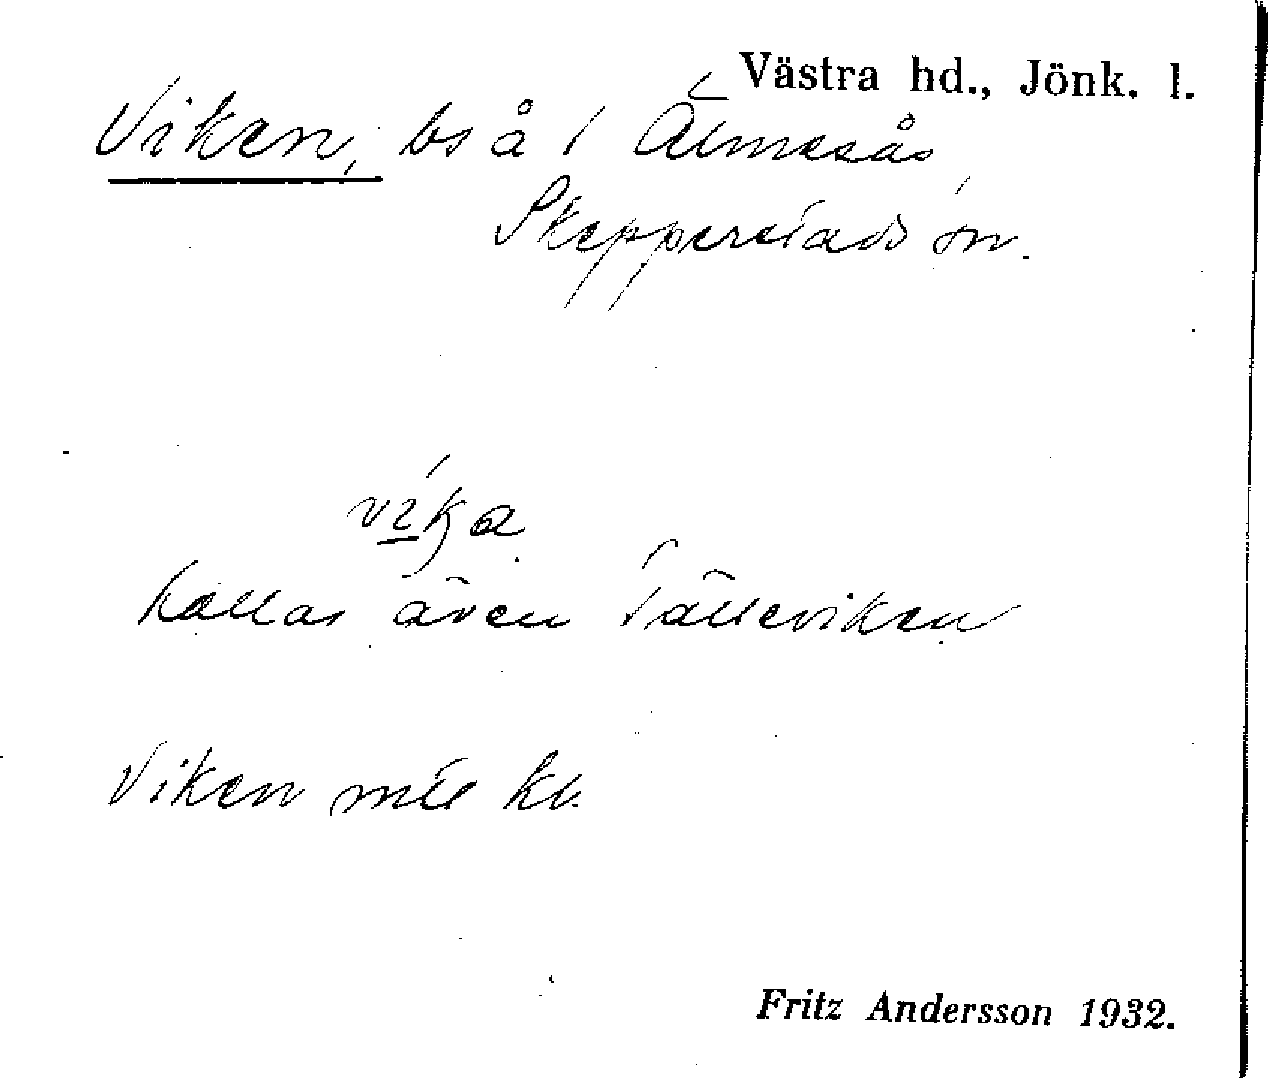 Västra hd., Jönk. l.
Viken, bs å 1 Älmesås,
Skepperstads sn.
vika
kallas även Tälleviken
Viken mtl kb.
Fritz Andersson 1932.